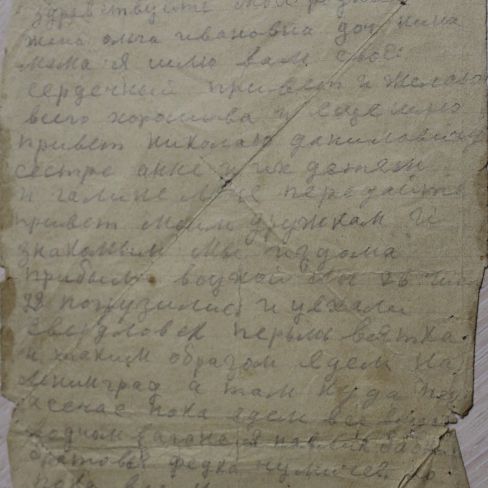 Здравствуйте мои родные
жена ольга ивановна доч нина
мама Я шлю вам свое
сердечный привет и желаю
всего хорошова и еще шлю
привет николаю даниловичу
сестре анне и их детям
и галине передайте
привет моим дружкам и
знакомым мы из дома
прибыли 26
28 погрузились и уехали
свердловск перьмь вятка
и таким образом едем на
ленинград а там куда
сечас пока едем все
водном вагоне я павлик
федка
пока